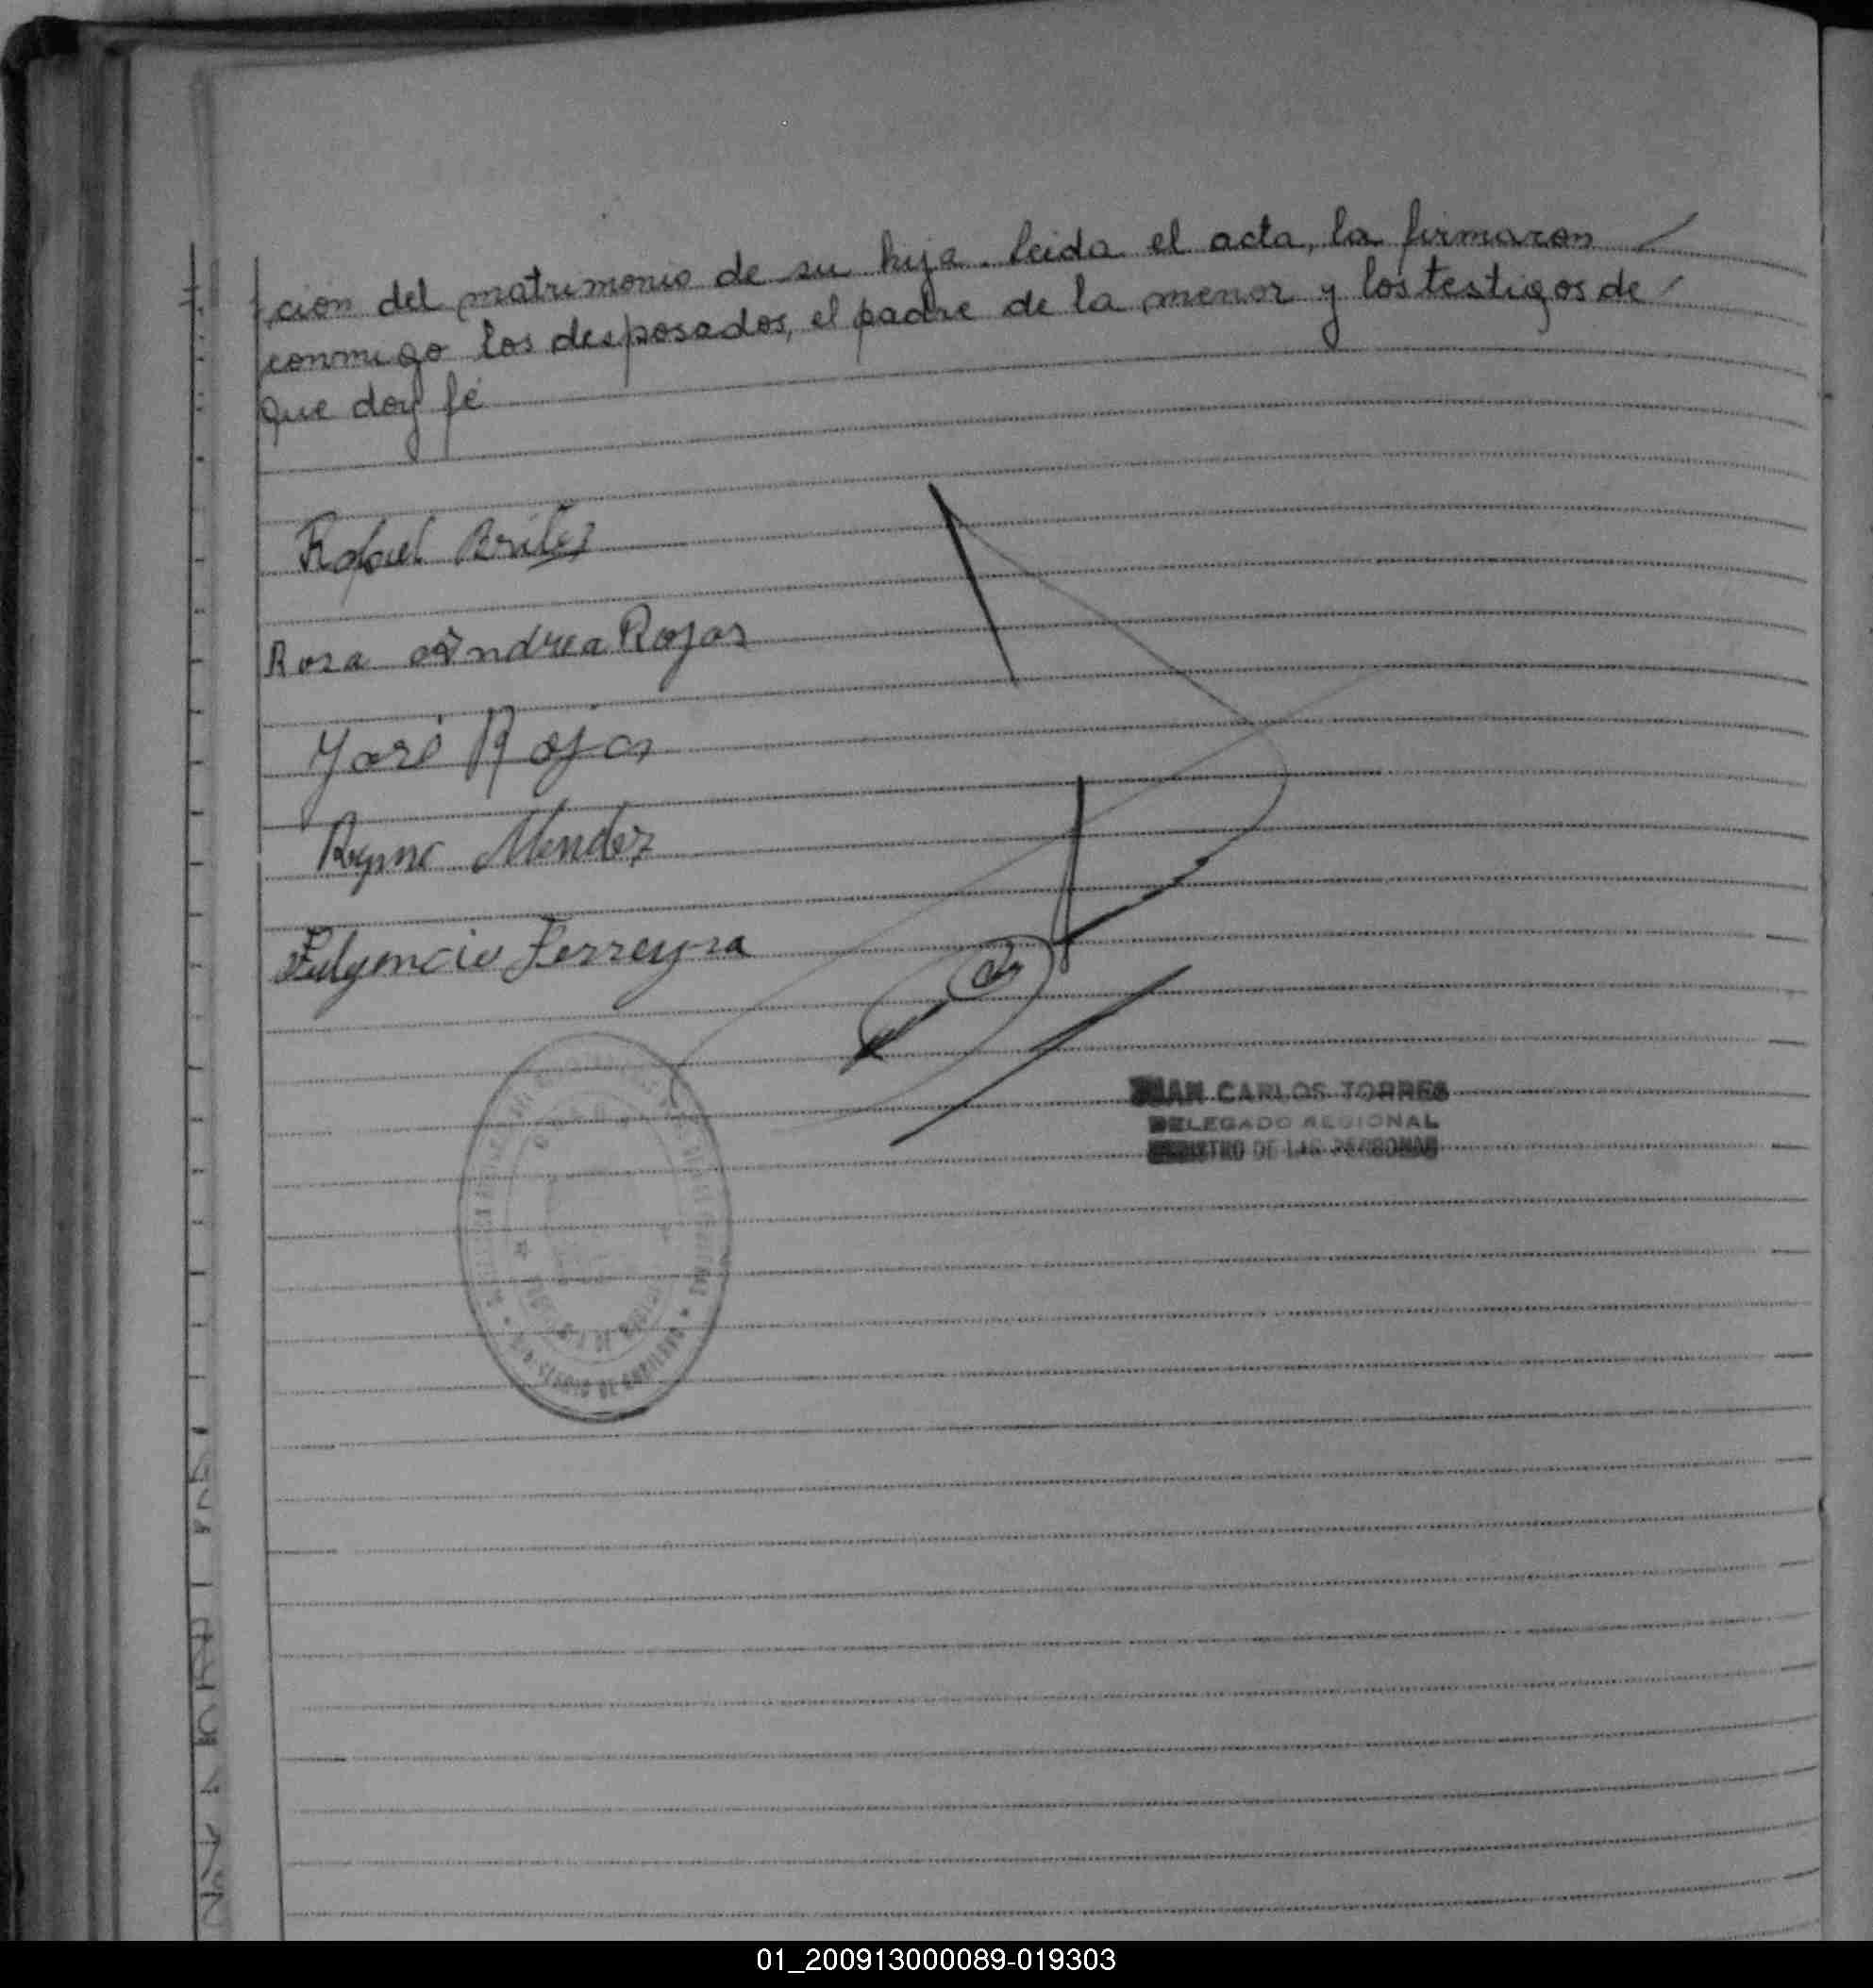 ción del matrimonio de su hija. leida el acta, la firmaron
conmigo los desposados, el padre de la menor y los testigos de
que doy fé
Rafael Brites
Rosa Andrea Rojas
José Rojas
Mendez
Fulgencio Ferreyra
JUAN CARLOS TORRES
DELEGADO REGIONAL
REGISTRO DE LAS PERSONAS
01_200913000089-019303